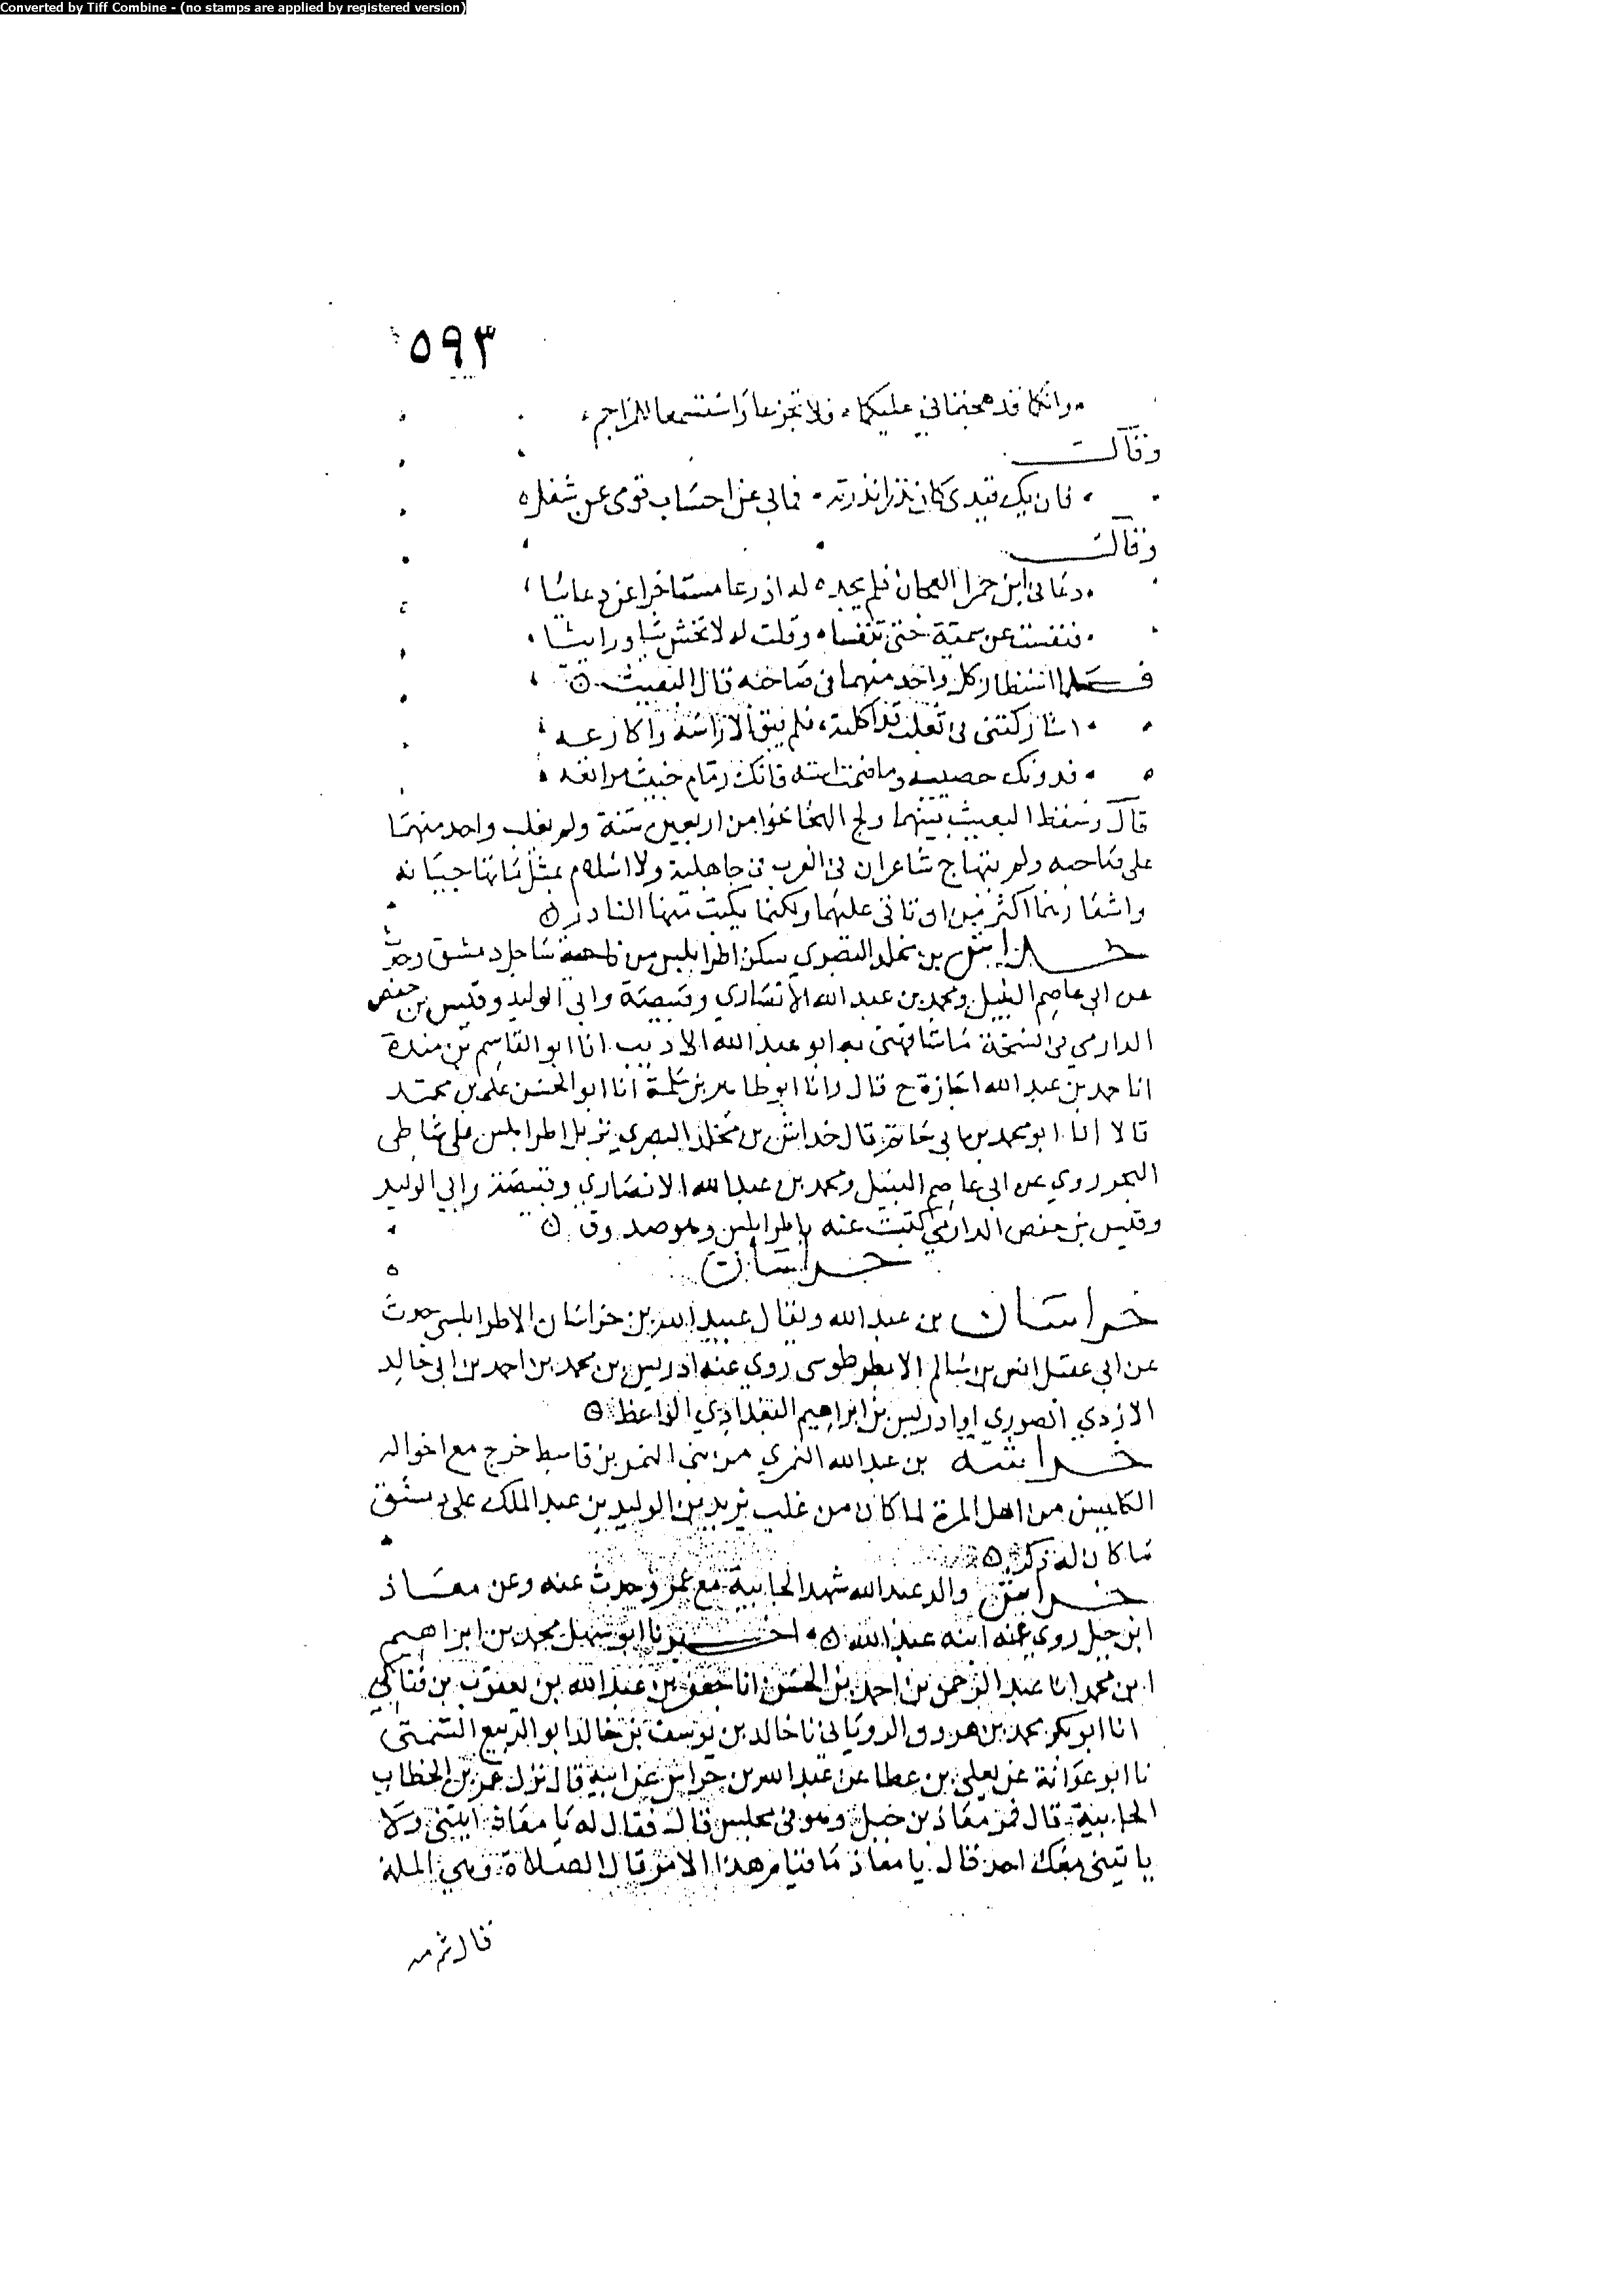 Converted by Tiff Combine - (no stamps are applied by registered version)
٥٩٣
وانكما قد هجتماني عليكما فلا تجزعا واستسمعا للمراجم
وقالت
فان يك قيدى كان نذرا نذرته فمالي عن احساب قومى عن شغل
وقالت
دعانى ابن حمرا العجان فلم يجد له اذ دعا مستاخرا عن دعائيا
فنفست عن سميه حتى تنفسا وقلت له لا تخش شيا ورائيا
فلما استطار كل واحد منهما فى صاحبه قال البعيث
اشاركتنى فى ثعلب قد اكلته فلم يبق الا راسه واكارعه
فدونك خصييه وما ضمت استه فانك رمام خبيث مراتعه
قال وسقط البعيث بينهما ولج الهجا نحوا من اربعين سنة ولم يغلب واحد منهما
على صاحبه ولم يتهاج شاعران فى العرب فى جاهلية ولا اسلام بمثل ما تهاجيا به
واشعارهما اكثر من ان تاتى عليهما ولكنما يكتب منها النادر
خداش بن مخلد البصري سكن اطرابلس من ساحل دمشق وحدث
عن ابي عاصم النبيل ومحمد بن عبد الله الانصاري وقبيصة وابي الوليد وقيس بن حفص
الدارمي فى نسخة ما شافهنى به ابو عبد الله الاديب انا ابو القاسم بن مندة
انا حمد بن عبد الله اجازة ح قال وانا ابو طاهر بن سلمة انا ابو الحسن علي بن محمد
قالا انا ابو محمد بن ابي حاتم قال خداش بن مخلد البصري نزيل اطرابلس على شاطى
البحر روي عن ابي عاصم النبيل ومحمد بن عبد الله الانصاري وقبيصة وابي الوليد
وقيس بن حفص الدارمي كتبت عنه باطرابلس وهو صدوق
خراسان
خراسان بن عبد الله ويقال عبيد الله بن خراسان الاطرابلسى حدث
عن ابي عقيل انس بن سالم الانطرطوسى روي عنه ادريس بن محمد بن احمد بن ابي خالد
الازدي الصوري ابو ادريس بن ابراهيم البغدادي الواعظ
خراشه بن عبد الله النمري من بنى النمر بن قاسط خرج مع اخواله
الكلبيين من اهل المزة لما كان من غلب يزيد بن الوليد بن عبد الملك على دمشق
ما كان له ذكر
خراش والد عبد الله شهد الجابية مع عمر وحدث عنه وعن معاذ
ابن جبل روى عنه ابنه عبد الله اخبرنا ابو سهل محمد بن ابراهيم
ابن محمد انا عبد الرحمن بن احمد بن الحسن انا جعفر بن عبد الله بن يعقوب بن فناكي
انا ابو بكر محمد بن هرون الرويانى نا خالد بن يوسف بن خالد ابو الربيع السمتى
نا ابو عوانة عن يعلى بن عطا عن عبد الله بن خراش عن ابيه قال نزل عمر بن الخطاب
الجابية قال فمر معاذ بن جبل وهو فى مجلس قال فقال له يا معاذ ايتنى ولا
ياتينى معك احد قال يا معاذ ما قيام هذا الامر قال الصلاة وهي الملة
قال ثم مه